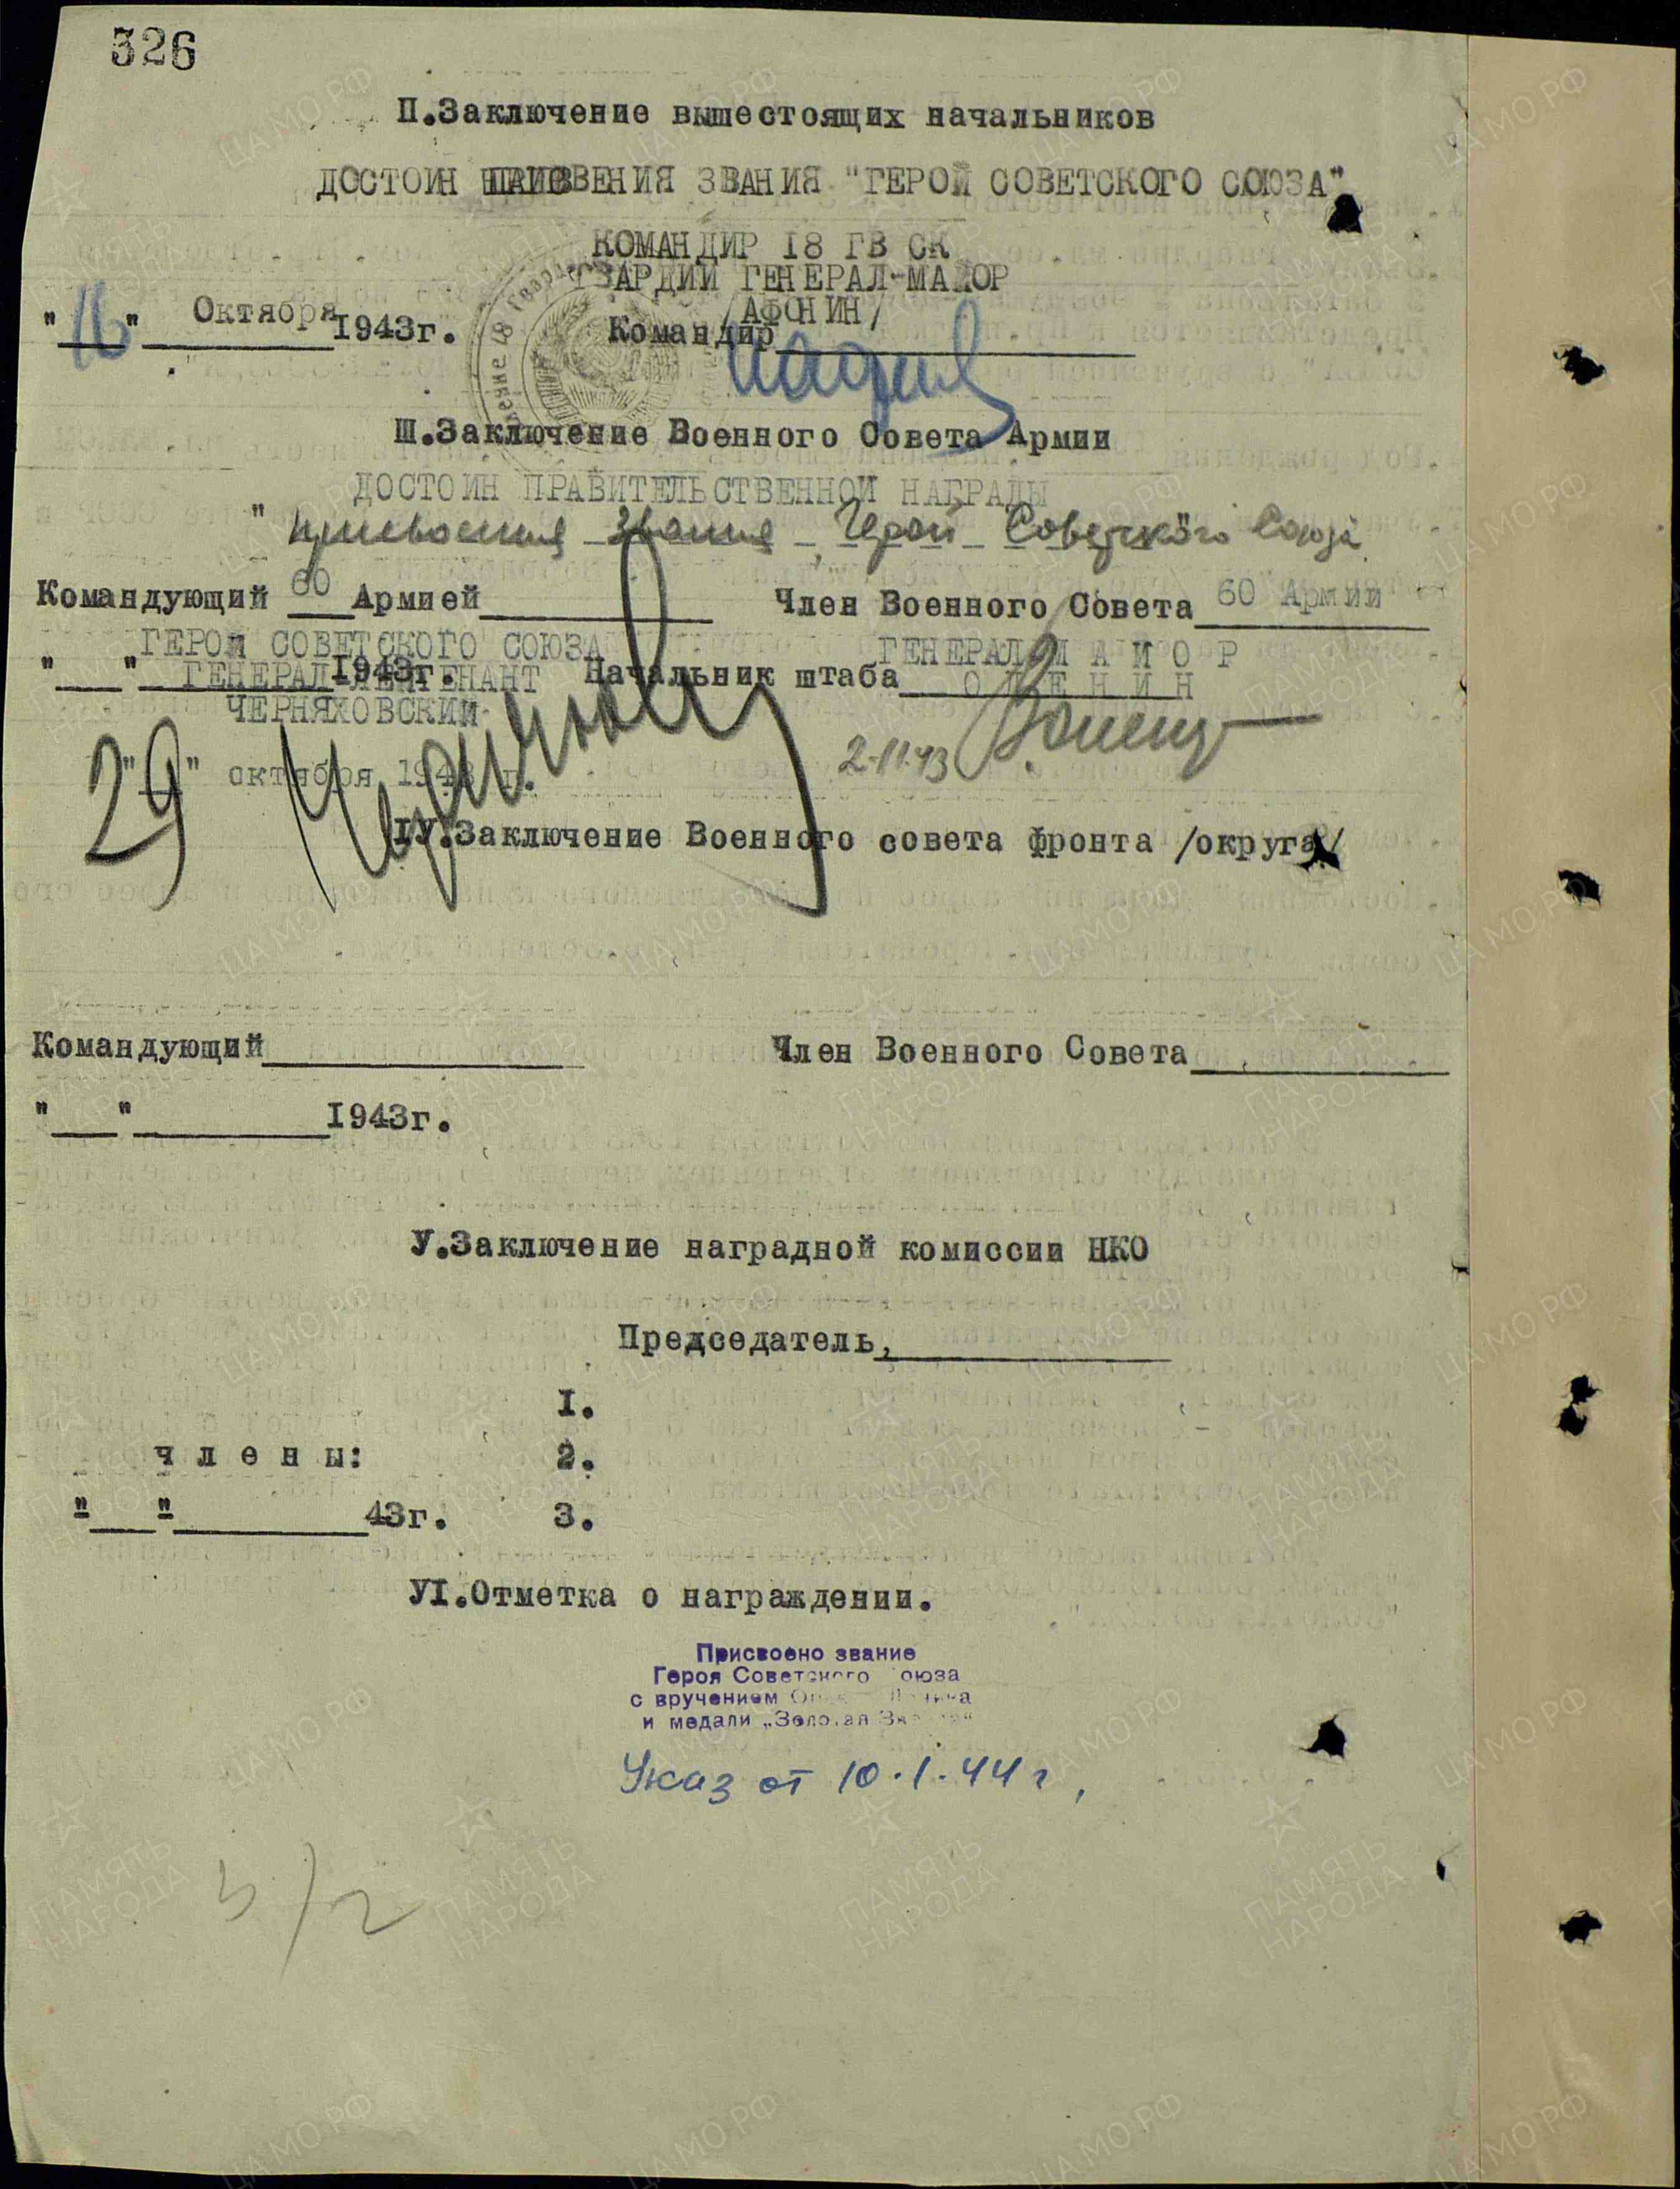 326
II.Заключение вышестоящих начальников
ДОСТОИН ЗВАНИЯ "ГЕРОЙ СОВЕТСКОГО СОЮЗА"
КОМАНДИР 18 ГВ СК
ГВАРДИИ ГЕНЕРАЛ-МАЙОР
/АФОНИН/
"16" Октября 1943г. Командир
Ш.Заключение Военного Совета Армии
ДОСТОИН ПРАВИТЕЛЬСТВЕННОЙ НАГРАДЫ
" присвоения звания Герой Советского Союза
Командующий 60 Армией Член Военного Совета 60 Армии
ГЕРОЙ СОВЕТСКОГО СОЮЗА ГЕНЕРАЛ МАИОР
" " 1943г. Начальник штаба
ГЕНЕРАЛ ЛЕЙТЕНАНТ ОЛЕНИН
ЧЕРНЯХОВСКИЙ
2-11-43
"29" октября 1943 г.
IУ.Заключение Военного совета фронта /округа/
Командующий Член Военного Совета
" " 1943г.
У.Заключение наградной комиссии НКО
Председатель,
1.
члены: 2.
" " 43г. 3.
УI.Отметка о награждении.
Присвоено звание
Героя Советского Союза
с вручением Ордена Ленина
и медали „Золотая Звезда"
Указ от 10.1.44 г,
3/2
ЦАМО РФ
ПАМЯТЬ НАРОДА